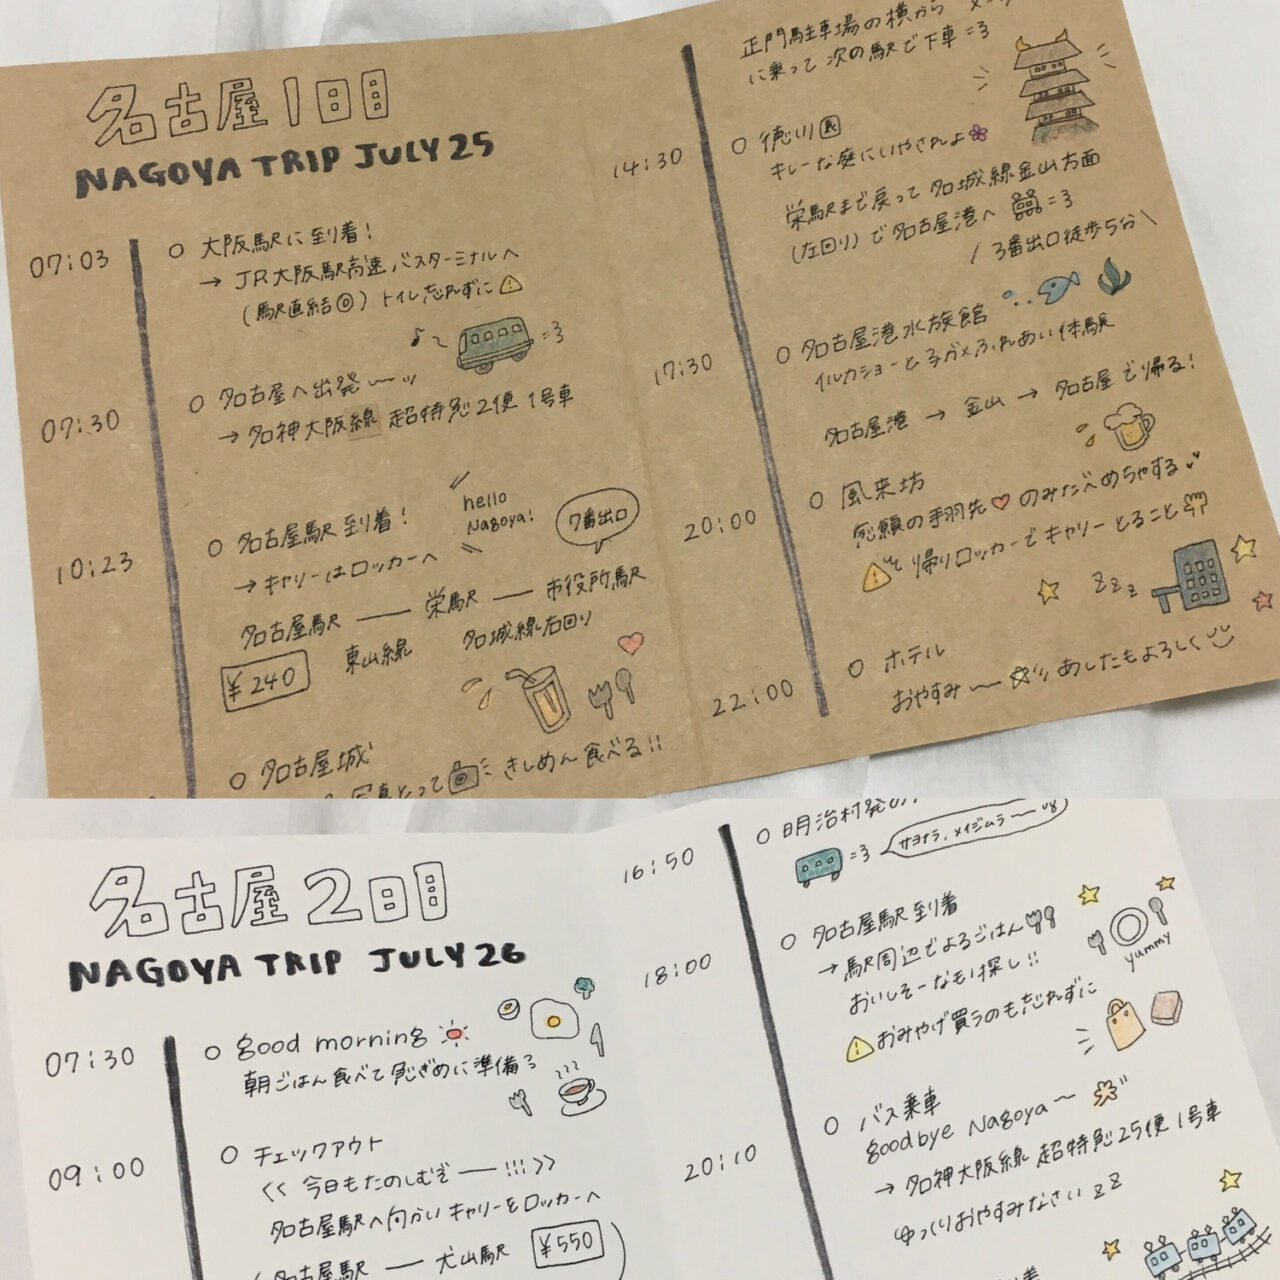 名古屋1日目
NAGOYA TRIP JULY 25
07:03
○ 大阪駅に到着!
→ JR大阪駅高速バスターミナルへ
(駅直結◎) トイレ忘れずに⚠
07:30
○ 名古屋へ出発〜ッ
→ 名神大阪線 超特急2便 1号車
10:23
○ 名古屋駅到着!
hello
Nagoya!
→ キャリーはロッカーへ
7番出口
名古屋駅 — 栄駅 — 市役所駅
¥240
東山線
名城線右回り
○ 名古屋城
写真とって きしめん食べる!!
正門駐車場の横から
に乗って 次の駅で下車=3
14:30
○ 徳川園
キレーな庭にいやされよ
栄駅まで戻って 名城線金山方面
(左回り)で名古屋港へ =3
/ 3番出口徒歩5分 \
17:30
○ 名古屋港水族館
イルカショーと子ガメふれあい体験
名古屋港 → 金山 → 名古屋で帰る!
20:00
○ 風来坊
念願の手羽先♡のみたべめちゃする
⚠ 帰りロッカーでキャリーとること
zzz
22:00
○ ホテル
おやすみ〜 あしたもよろしく
名古屋2日目
NAGOYA TRIP JULY 26
07:30
○ good morning
朝ごはん食べて急ぎめに準備
09:00
○ チェックアウト
<< 今日もたのしむぞ—!!! >>
名古屋駅へ向かいキャリーをロッカーへ
(名古屋駅 — 犬山駅 ¥550
16:50
○ 明治村発
=3 サヨナラ、メイジムラ〜
18:00
○ 名古屋駅到着
→ 駅周辺でよるごはん
おいしそーなもの探し!!
yummy
⚠おみやげ買うのも忘れずに
20:10
○ バス乗車
goodbye Nagoya〜
→ 名神大阪線 超特急25便 1号車
ゆっくりおやすみなさい zz